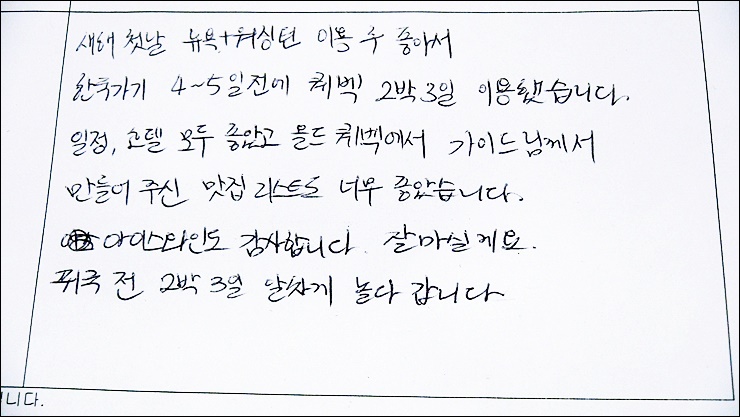 새해 첫날 뉴욕+워싱턴 이용 후 좋아서
한국가기 4~5일전에 퀘벡 2박3일 이용했습니다.
일정, 호텔 모두 좋았고 올드 퀘벡에서 가이드님께서
만들어 주신 맛집 리스트도 너무 좋았습니다.
아이스와인도 감사합니다. 잘마실게요.
귀국 전 2박3일 알차게 놀다 갑니다
니다.